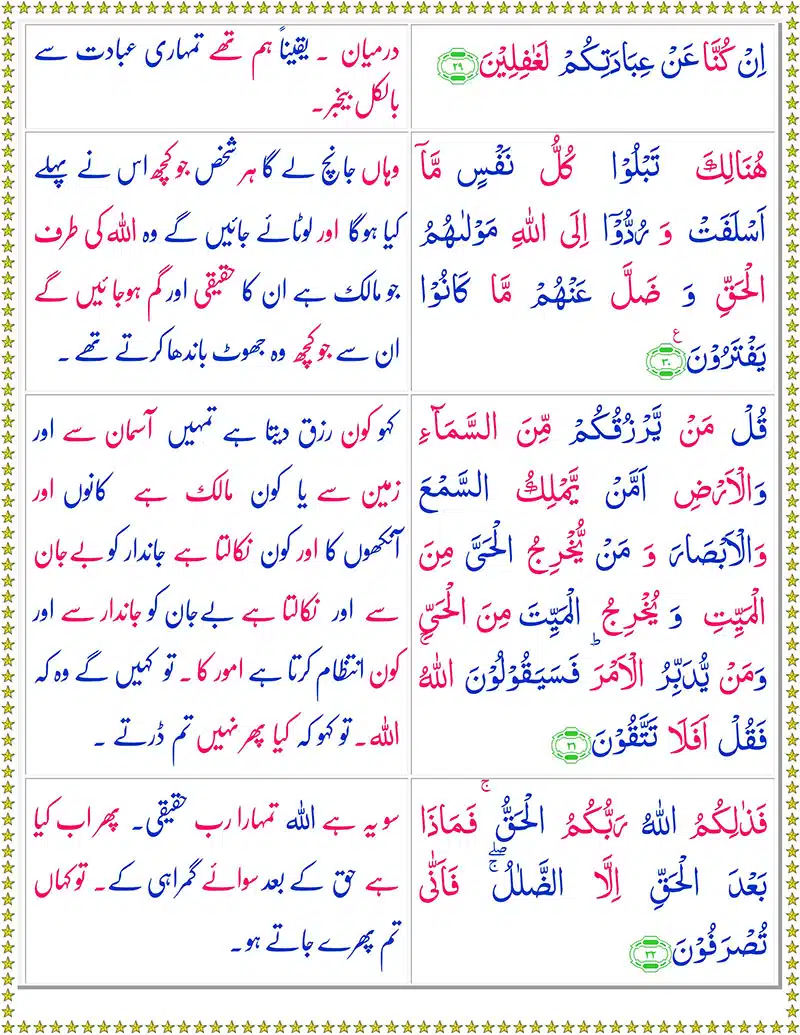 اِنْ كُنَّا عَنْ عِبَادَتِكُمْ لَغٰفِلِيْنَ ٢٩
درمیان ۔ یقیناً ہم تھے تمہاری عبادت سے
بالکل بیخبر۔
هُنَالِكَ تَبْلُوْا كُلُّ نَفْسٍ مَّاۤ
اَسْلَفَتْ وَ رُدُّوْۤا اِلَى اللّٰهِ مَوْلٰىهُمُ
الْحَقِّ وَ ضَلَّ عَنْهُمْ مَّا كَانُوْا
يَفْتَرُوْنَ ع ٣٠
وہاں جانچ لے گا ہر شخص جو کچھ اس نے پہلے
کیا ہوگا اور لوٹائے جائیں گے وہ اللہ کی طرف
جو مالک ہے ان کا حقیقی اور گم ہوجائیں گے
ان سے جو کچھ وہ جھوٹ باندھا کرتے تھے ۔
قُلْ مَنْ يَّرْزُقُكُمْ مِّنَ السَّمَآءِ
وَالْاَرْضِ اَمَّنْ يَّمْلِكُ السَّمْعَ
وَالْاَبْصَارَ وَ مَنْ يُّخْرِجُ الْحَىَّ مِنَ
الْمَيِّتِ وَ يُخْرِجُ الْمَيِّتَ مِنَ الْحَىِّ
وَمَنْ يُّدَبِّرُ الْاَمْرَ ؕ فَسَيَقُوْلُوْنَ اللّٰهُ ۚ
فَقُلْ اَفَلَا تَتَّقُوْنَ ٣١
کہو کون رزق دیتا ہے تمہیں آسمان سے اور
زمین سے یا کون مالک ہے کانوں اور
آنکھوں کا اور کون نکالتا ہے جاندار کو بےجان
سے اور نکالتا ہے بےجان کو جاندار سے اور
کون انتظام کرتا ہے امور کا ۔ تو کہیں گے وہ کہ
اللہ۔ تو کہو کہ کیا پھر نہیں تم ڈرتے ۔
فَذٰلِكُمُ اللّٰهُ رَبُّكُمُ الْحَقُّ ۚ فَمَاذَا
بَعْدَ الْحَقِّ اِلَّا الضَّلٰلُ ۖۚ فَاَنّٰى
تُصْرَفُوْنَ ٣٢
سو یہ ہے اللہ تمہارا رب حقیقی۔ پھر اب کیا
ہے حق کے بعد سوائے گمراہی کے۔ تو کہاں
تم پھرے جاتے ہو۔